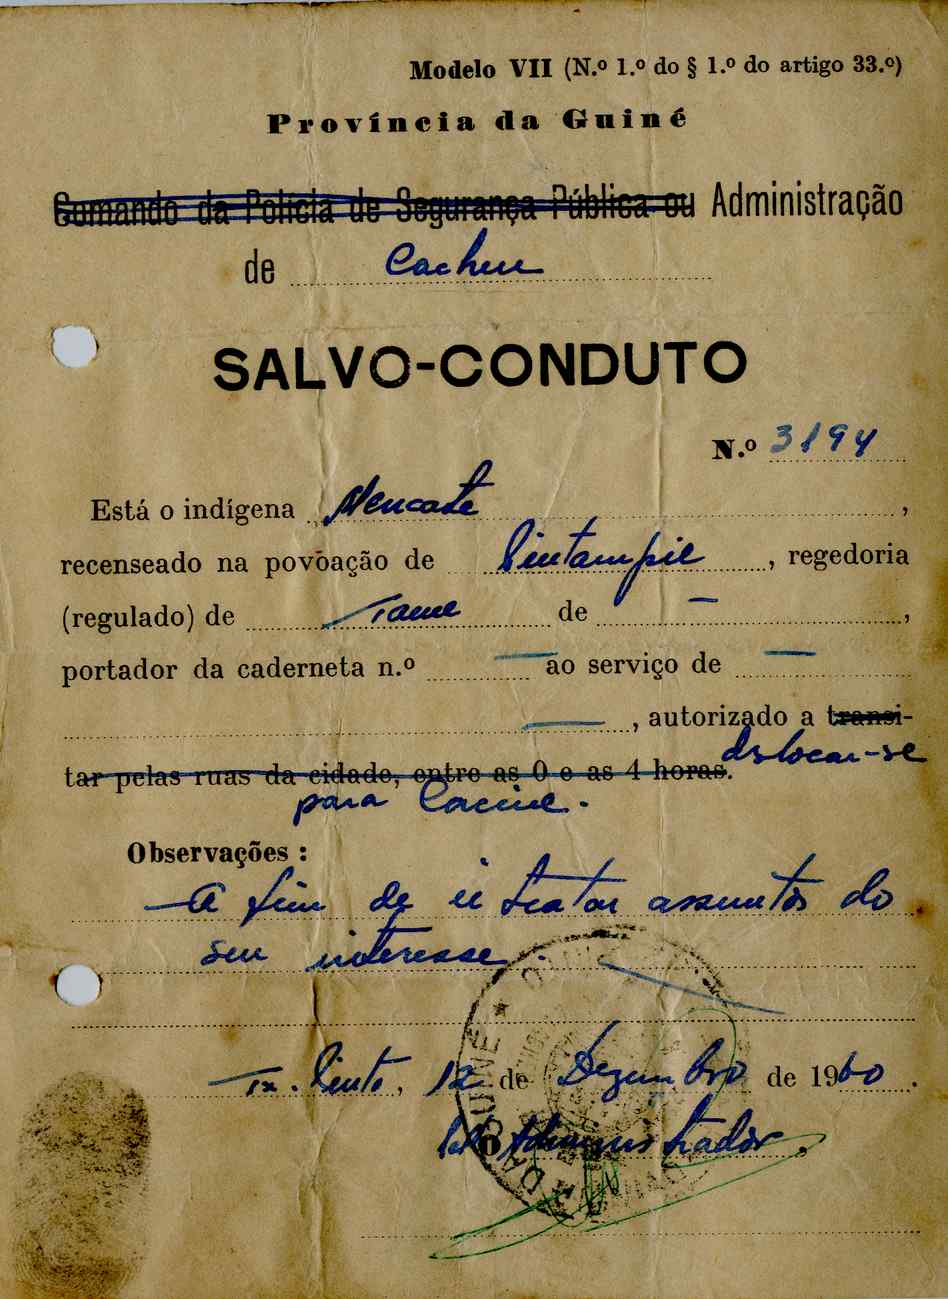 Modelo VII (N.º 1.º do § 1.º do artigo 33.º)
Província da Guiné
Comando da Polícia de Segurança Pública ou Administração
de Cacheu
SALVO-CONDUTO
N.º 3194
Está o indígena Nencate,
recenseado na povoação de, regedoria
(regulado) de Tame de —,
portador da caderneta n.º — ao serviço de —
—, autorizado a transi-
tar pelas ruas da cidade, entre as 0 e as 4 horas. dslocar-se
para Cacine.
Observações:
A fim de ir tratar assuntos do
seu interesse.
12 de Dezembro de 1960.
Administrador,